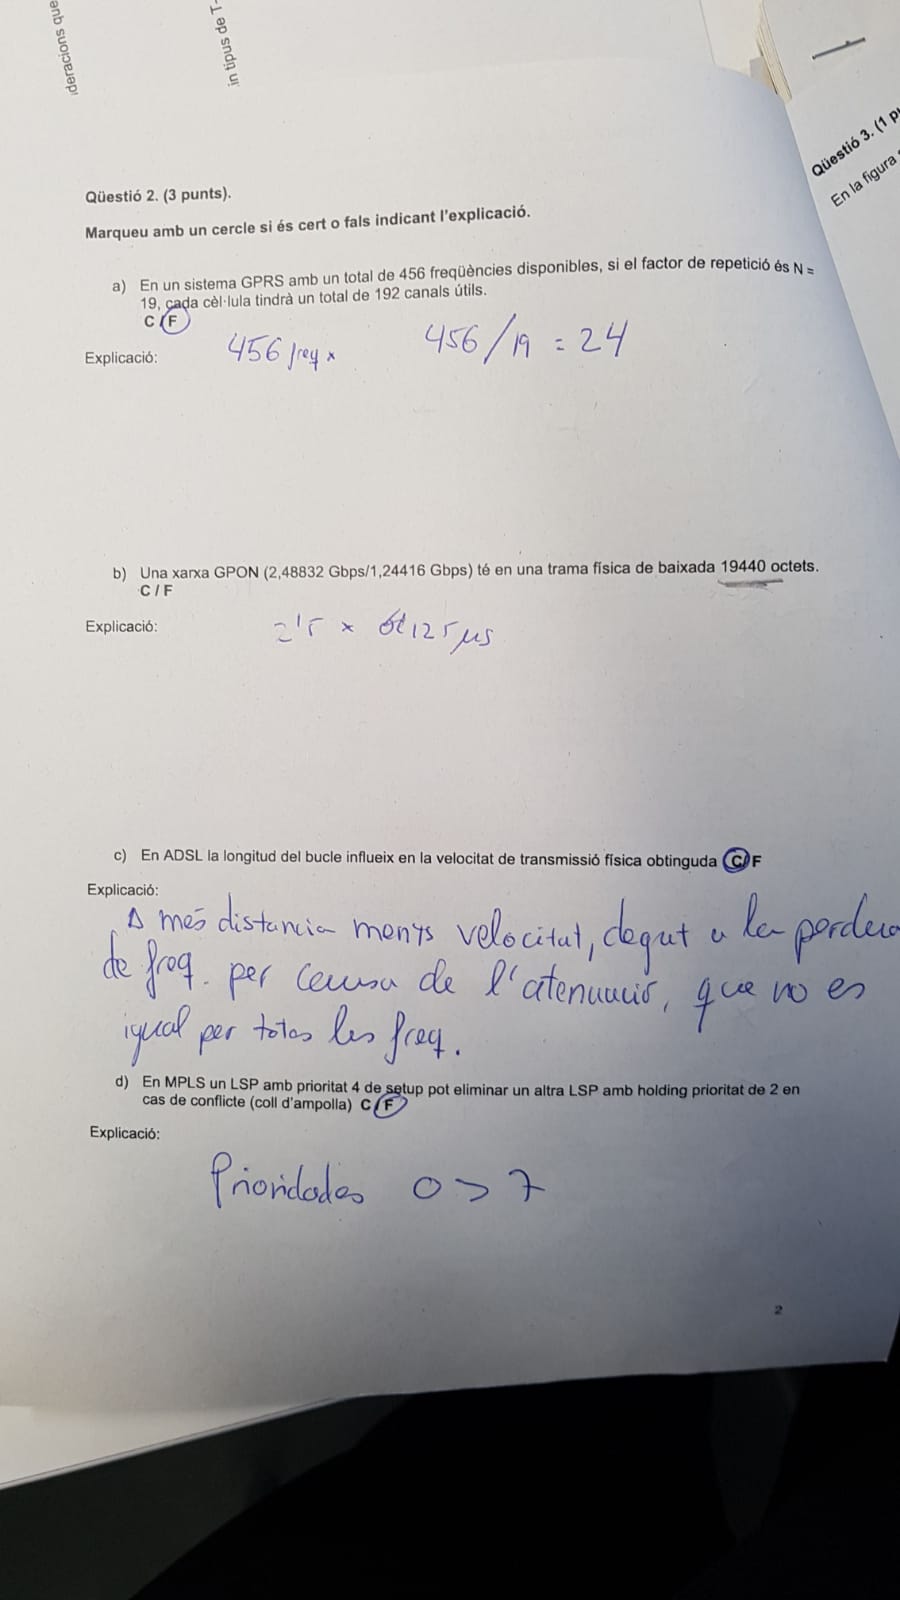 deracions que
in tipus de T-
Qüestió 3. (1 p
En la figura
Qüestió 2. (3 punts).
Marqueu amb un cercle si és cert o fals indicant l'explicació.
a) En un sistema GPRS amb un total de 456 freqüències disponibles, si el factor de repetició és N =
19, cada cèl·lula tindrà un total de 192 canals útils.
C / F
Explicació: 456 freq x 456/19 = 24
b) Una xarxa GPON (2,48832 Gbps/1,24416 Gbps) té en una trama física de baixada 19440 octets.
C / F
Explicació: 2'5 x 125 µs
c) En ADSL la longitud del bucle influeix en la velocitat de transmissió física obtinguda C/F
Explicació:
A més distancia menys velocitat, degut a la perdua
de freq. per causa de l'atenuació, que no es
igual per totes les freq.
d) En MPLS un LSP amb prioritat 4 de setup pot eliminar un altra LSP amb holding prioritat de 2 en
cas de conflicte (coll d'ampolla) C / F
Explicació:
Prioridades 0 > 7
2